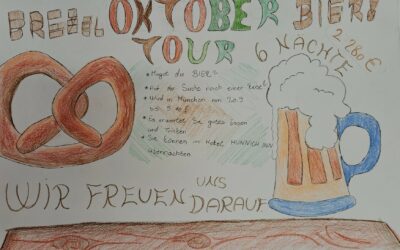 OKTOBER BIER!
TOUR
6 NÄCHTE
2.280€
• Magst du BIER?
• Auf der Suche nach einer Reise?
• Wird in München von 20.9
bis 5.10
• Es erwartet Sie gutes Essen
und Trinken
• Sie können im Hotel MUNICH INN
übernachten
WIR FREUEN UNS
DARAUF